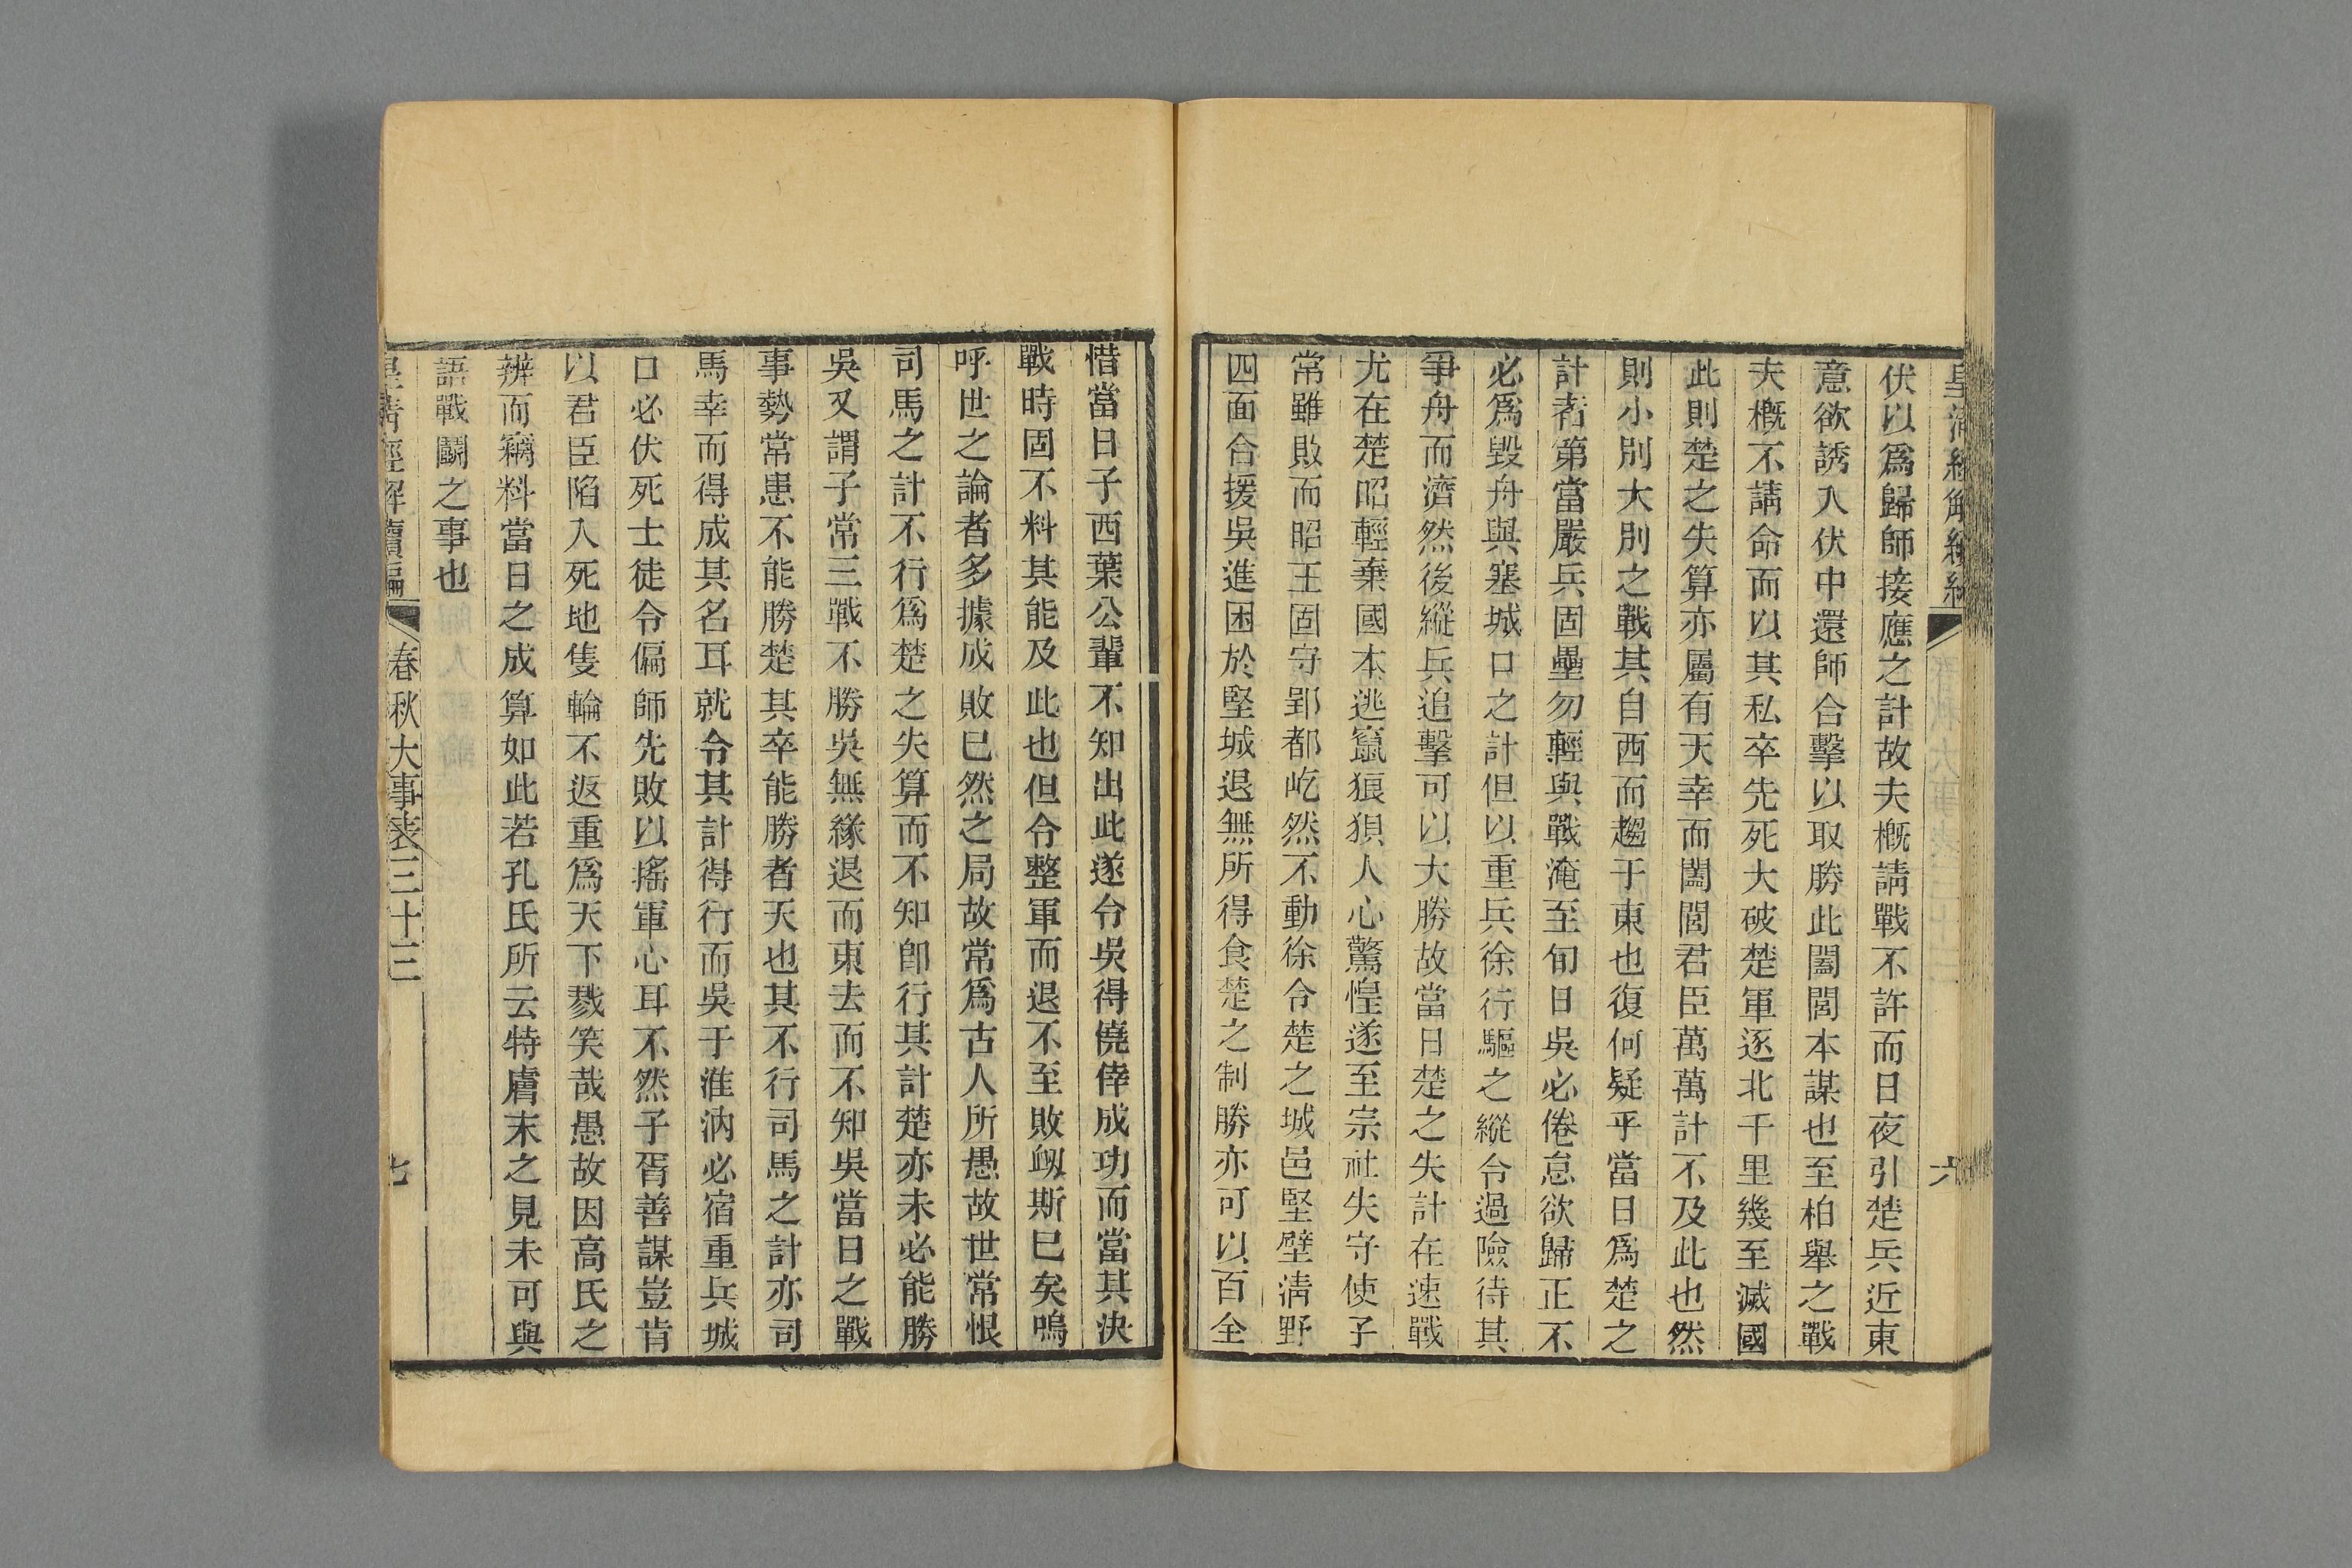 伏以爲歸師接應之計故夫概請戰不許而日夜引楚兵近東
意欲誘入伏中還師合擊以取勝此闔閭本謀也至柏舉之戰
夫概不請命而以其私卒先死大破楚軍逐北千里幾至滅國
此則楚之失算亦屬有天幸而闔閭君臣萬萬計不及此也然
則小別大別之戰其自西而趨于東也復何疑乎當日爲楚之
計者第當嚴兵固壘勿輕與戰淹至旬日吳必倦怠欲歸正不
必爲毀舟與塞城口之計但以重兵徐行驅之縱令過險待其
爭舟而濟然後縱兵追擊可以大勝故當日楚之失計在速戰
尤在楚昭輕棄國本逃竄狼狽人心驚惶遂至宗社失守使子
常雖敗而昭王固守郢都屹然不動徐令楚之城邑堅壁淸野
四面合援吳進困於堅城退無所得食楚之制勝亦可以百全
六
惜當日子西葉公輩不知出此遂令吳得僥倖成功而當其決
戰時固不料其能及此也但令整軍而退不至敗衂斯已矣嗚
呼世之論者多據成敗已然之局故常爲古人所愚故世常恨
司馬之計不行爲楚之失算而不知卽行其計楚亦未必能勝
吳又謂子常三戰不勝吳無緣退而東去而不知吳當日之戰
事勢常患不能勝楚其卒能勝者天也其不行司馬之計亦司
馬幸而得成其名耳就令其計得行而吳于淮汭必宿重兵城
口必伏死士徒令偏師先敗以搖軍心耳不然子胥善謀豈肯
以君臣陷入死地隻輪不返重爲天下戮笑哉愚故因高氏之
辨而竊料當日之成算如此若孔氏所云特膚末之見未可與
語戰鬭之事也
皇淸經解續編
春秋大事表三十三
七